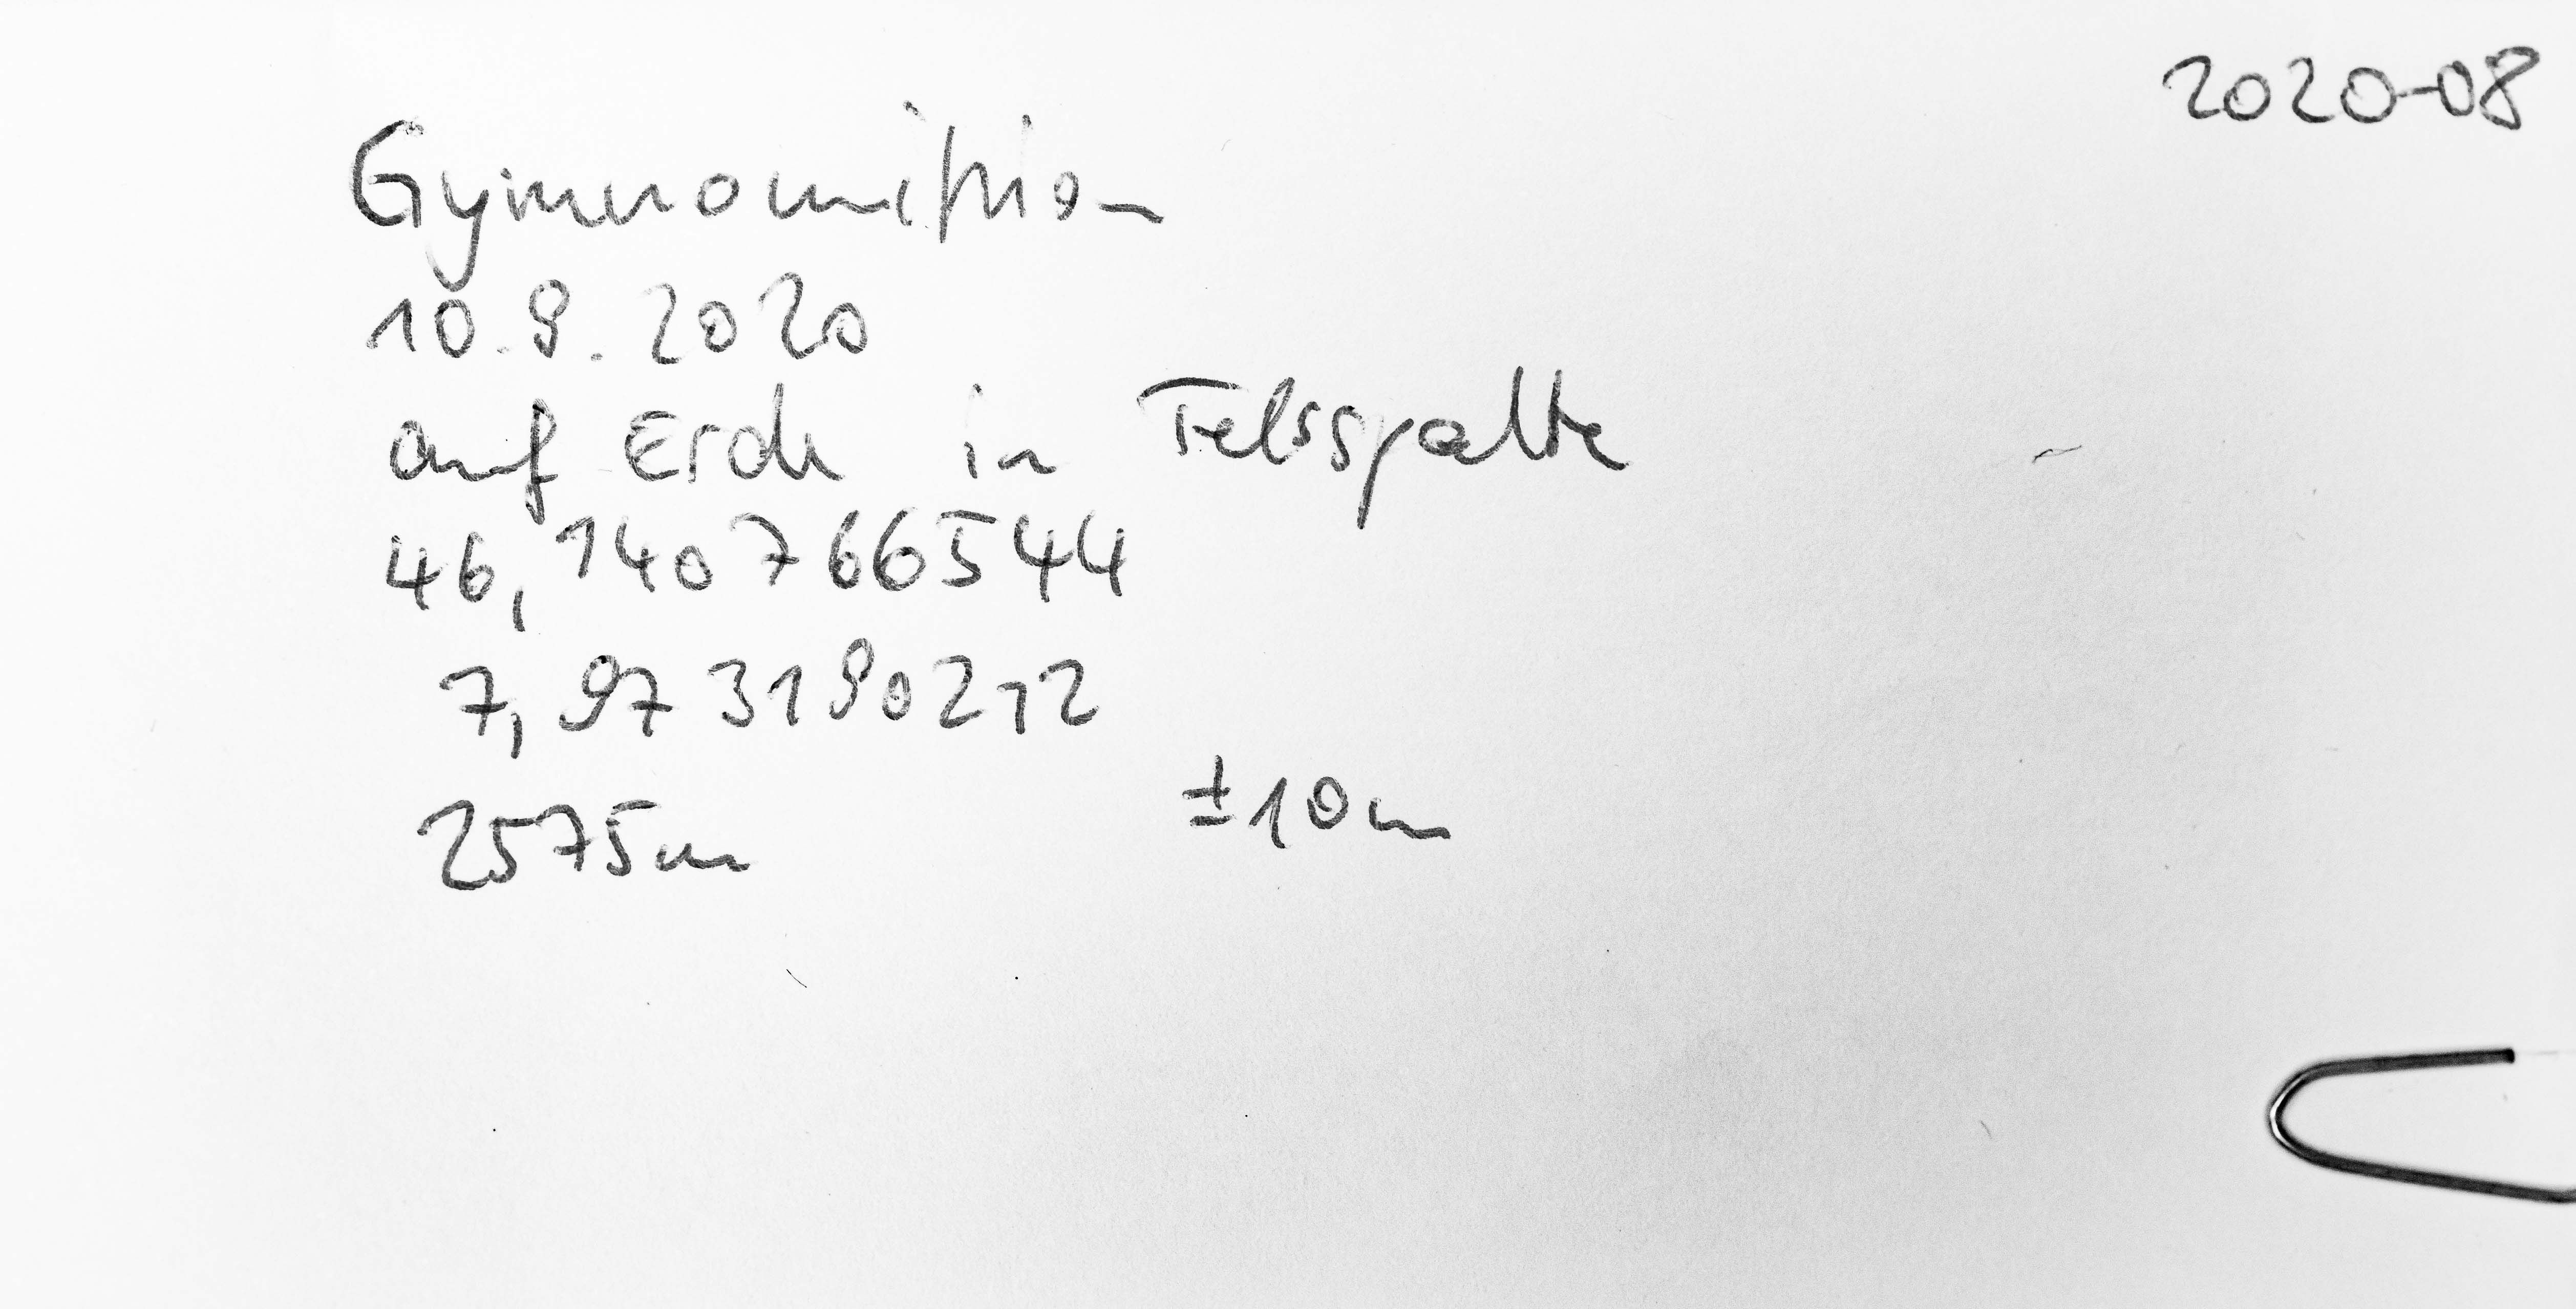 2020-08
Gymnomitrion
10.9.2020
auf Erde in Felsspalte
46,140766544
7,973190212
2575m ±10m